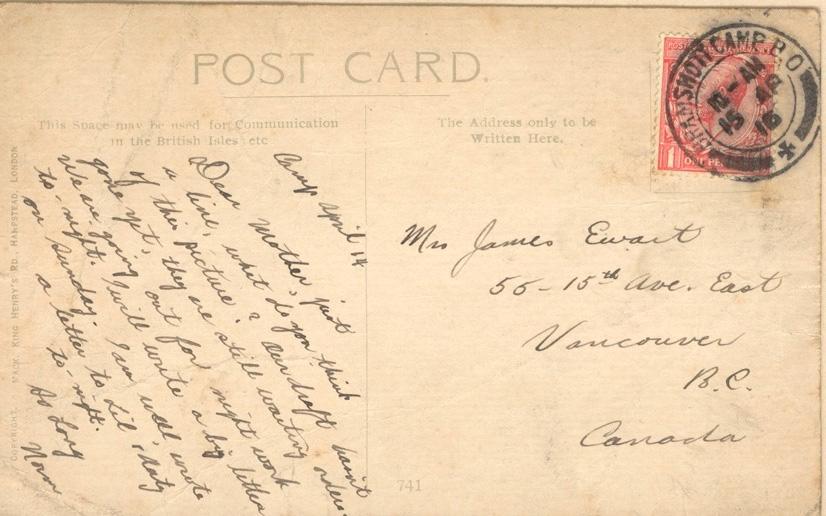 POST CARD.
This Space may be used for Communication
in the British Isles etc
The Address only to be
Written Here.
Camp April 14
Dear Mother, just
a line, what do you think
of this picture? Our draft hasn't
gone yet, they are still waiting orders.
We are going out for night work
to-night. I will write a big letter
on Sunday. I am well, wrote
a letter to Lil & Maty
to-night.
So Long
Norm
Mrs James Ewart
56-15th Ave. East
Vancouver
B.C.
Canada
BRAMSHOTT CAMP B.O
12-AM
15 AP
16
1 ONE PENNY
COPYRIGHT. MACK, KING HENRY'S RD, HAMPSTEAD, LONDON
741